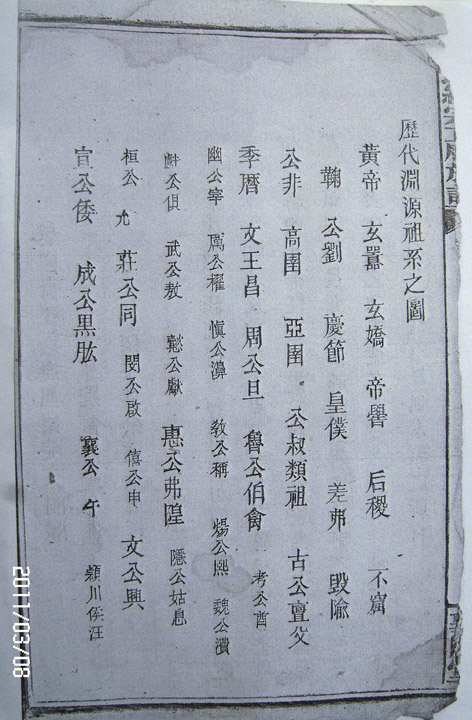 歷代淵源祖系之圖
黃帝 玄囂 玄嬌 帝嚳 后稷 不窋
鞠 公劉 慶節 皇僕 差弗 毀隃
公非 高圉 亞圉 公叔類祖 古公亶父
季曆 文王昌 周公旦 魯公伯禽 考公酋
幽公宰 厲公擢 慎公濞 敩公稱 煬公熙 魏公濆
公偵 武公敖 懿公獻 惠公弗隍 隱公姑息
桓公允 莊公同 閔公啟 僖公申 文公興
宣公倭 成公黑肱 襄公午 潁川侯汪
2011/03/08